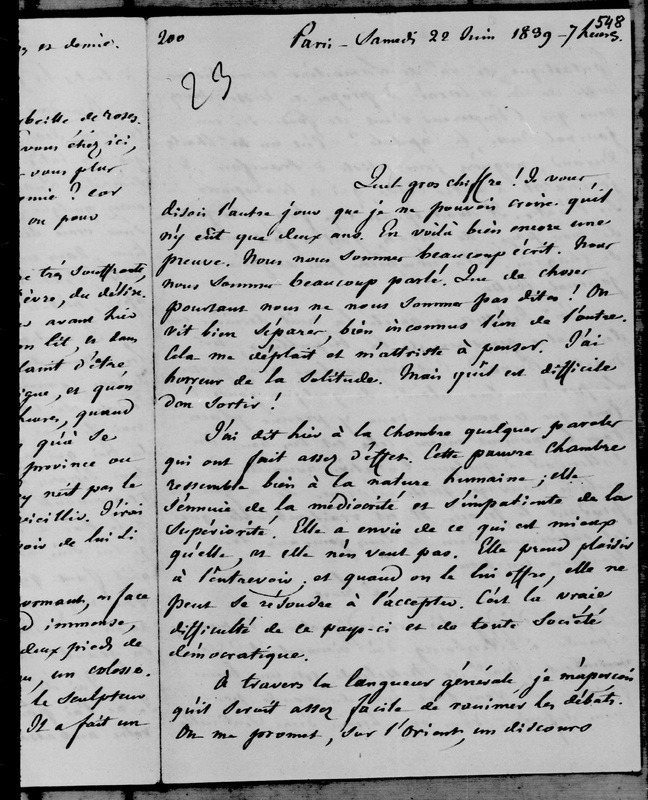 s et demie.
rbeille de roses.
vous chez ici,
vous plus
omie ? car
ou pour
e très souffrante,
ièvre, du délire.
avant hier
on lit, et dans
d'être
ique, et qu'on
heures, quand
qui se
province ou
n'est pas le
vieillir. J'irai
oir de lui si
ormant, en face
d immense,
deux pieds de
un colosse.
le sculpteur
Il a fait un
200 Paris - Samedi 22 Juin 1839 - 7 heures. 548
23
Quel gros chiffre ! Je vous
disois l'autre jour que je ne pouvois croire qu'il
n'y eût que deux ans. En voilà bien encore une
preuve. Nous nous sommes beaucoup écrit. Nous
nous sommes beaucoup parlé. Que de choses
pourtant nous ne nous sommes pas dites ! On
vit bien séparés, bien inconnus l'un de l'autre.
Cela me déplait et m'attriste à penser. J'ai
horreur de la solitude. Mais qu'il est difficile
d'en sortir !
J'ai dit hier à la Chambre quelques paroles
qui ont fait assez d'effet. Cette pauvre Chambre
ressemble bien à la nature humaine ; elle
s'ennuie de la médiocrité et s'impatiente de la
supériorité. Elle a envie de ce qui est mieux
qu'elle, et elle n'en veut pas. Elle prend plaisir
à l'entrevoir, et quand on le lui offre, elle ne
peut se résoudre à l'accepter. C'est la vraie
difficulté de ce pays-ci et de toute société
démocratique.
A travers la langueur générale je m'aperçois
qu'il seroit assez facile de ranimer les débats.
On me promet, sur l'Orient, un discours